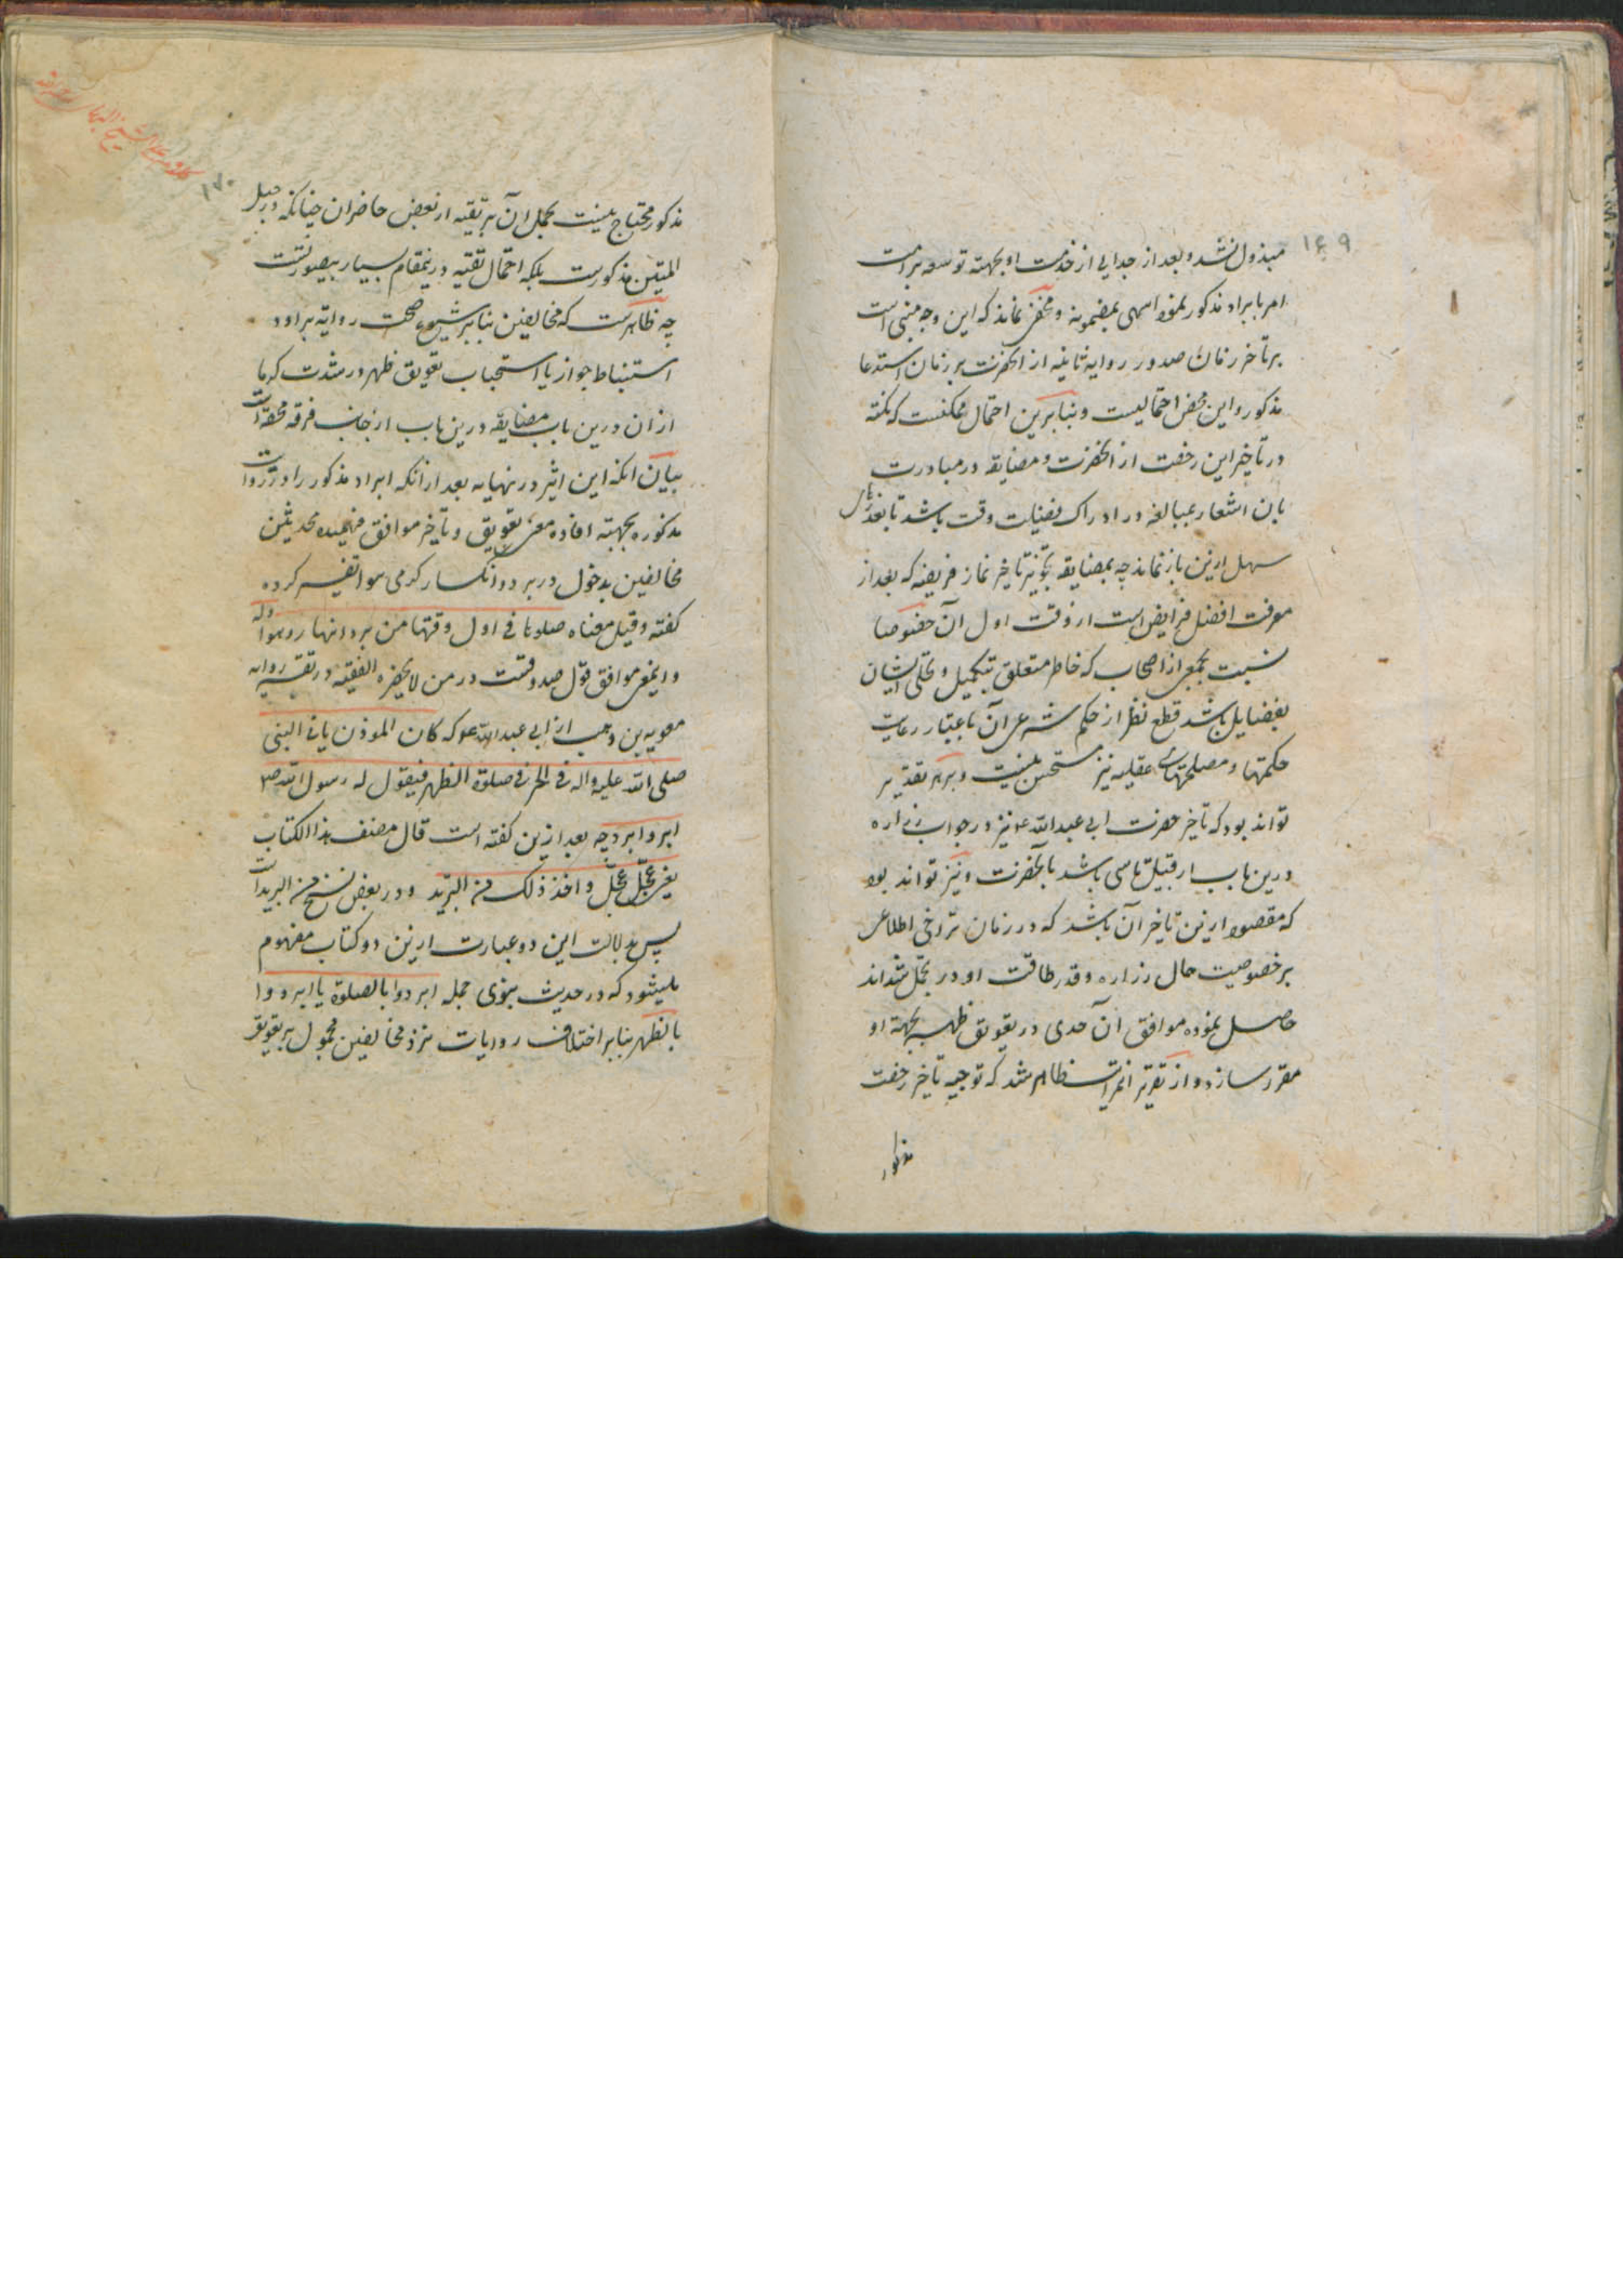 ۱۶۹
مبذول نشد و بعد از جدایی از خدمت او بجهته توسعه برامت
امر بابراد مذکور نمود اسهی بمضمونه و مخفی نماند که این وجه مبنی است
بر تاخر زمان صدور روایه ثانیه از انحضرت بر زمان استدعا
مذکور و این محض احتمالیست و بنابرین احتمال ممکنست که نکته
در تاخیر این رخصت از انحضرت و مضایقه در مبادرت
بان اشعار بمبالغه در ادراک فضیلت وقت باشد تا بعذر
سهل ازین باز نمانند چه بمضایقه تجویز تاخیر نماز فریضه که بعد از
معرفت افضل فرایض است از وقت اول آن خصوصا
نسبت بجمعی از اصحاب که خاطر متعلق بتکمیل و تحلی ایشان
بفضایل باشد قطع نظر از حکم شرعی آن باعتبار رعایت
حکمتها و مصلحتهای عقلیه نیز مستحسن نیست و بر هر تقدیر
تواند بود که تاخیر حضرت ابی عبدالله ع نیز در جواب زراره
درین باب از قبیل تاسی باشد بانحضرت و نیز تواند بود
که مقصود ازین تاخیر آن باشد که در زمان تراخی اطلاعی
بر خصوصیت حال زراره و قدر طاقت او در تحمل شداند
حاصل نموده موافق آن حدی در تعویق ظهر بجهته او
مقرر سازد و از تقریر اثمراتب ظاهر شد که توجیه تاخیر رخصت
مذکور
۱۷۰
مذکور محتاج نیست بحمل آن بر تقیه از بعض حاضران چنانکه در حبل
المتین مذکورست بلکه احتمال تقیه درینمقام بسیار بیصورتست
چه ظاهرست که مخالفین بنابر شیوع صحت روایه ابراد
استنباط جواز یا استحباب تعویق ظهر در شدت گرما
از ان درین باب مضایقه درین باب از جانب فرقه محقه است
بیان انکه ابن اثیر در نهایه بعد از انکه ابراد مذکور را در روایت
مذکوره بجهته افاده معنی تعویق و تاخیر موافق فهمیده محدثین
مخالفین بدخول در برد و انکسار گرمی هوا تفسیر کرده
گفته و قیل معناه صلوها فی اول وقتها من برد النهار و هو اوله
و اینمعنی موافق قول صدوقست در من لایحضره الفقیه در تفسیر روایه
معویه بن وهب از ابی عبدالله ع که کان الموذن یاتی النبی
صلی الله علیه واله فی الحر فی صلوة الظهر فیقول له رسول الله ص
ابرد ابرد چه بعد ازین گفته است قال مصنف هذا الکتاب
یعنی عجّل عجّل و اخذ ذلک من البرید و در بعض نسخ من البریداست
پس بدلالت این دو عبارت ازین دو کتاب مفهوم
میشود که در حدیث نبوی جمله ابردوا بالصلوة یا ابردوا
بالظهر بنابر اختلاف روایات نزد مخالفین محمول بر تعویق